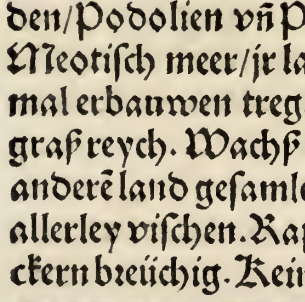 den/Podolien vñ P
Meotisch meer/jr la
mal erbauwen treg
graß reych. Wachß
anderē land gesamle
allerley vischen. Ran
ckern breüchig. Kein